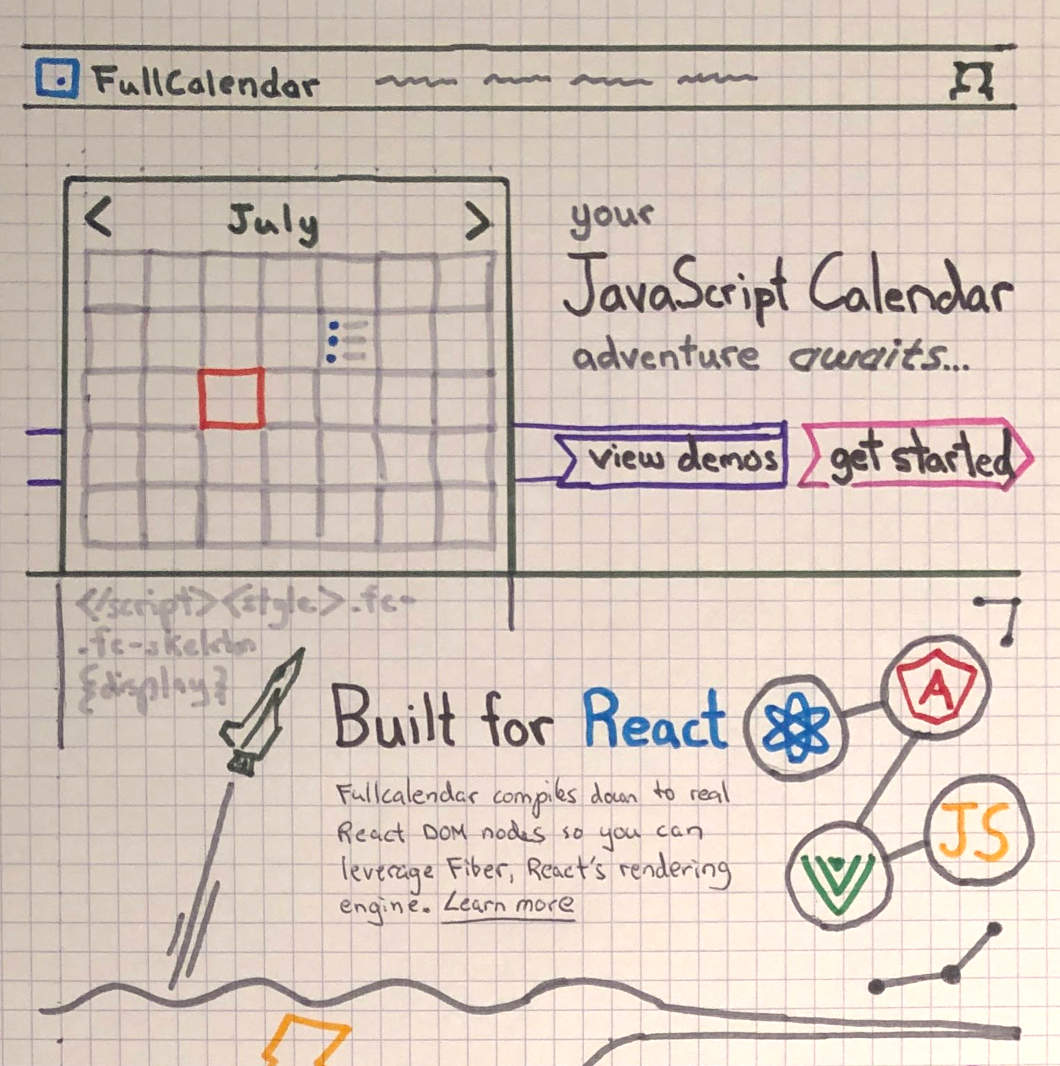 FullCalendar
< July >
your
JavaScript Calendar
adventure awaits...
view demos
get started
</script><style>.fc-
.fc-skeleton
{display}
Built for React
Fullcalendar compiles down to real
React DOM nodes so you can
leverage Fiber, React's rendering
engine. Learn more
A
JS